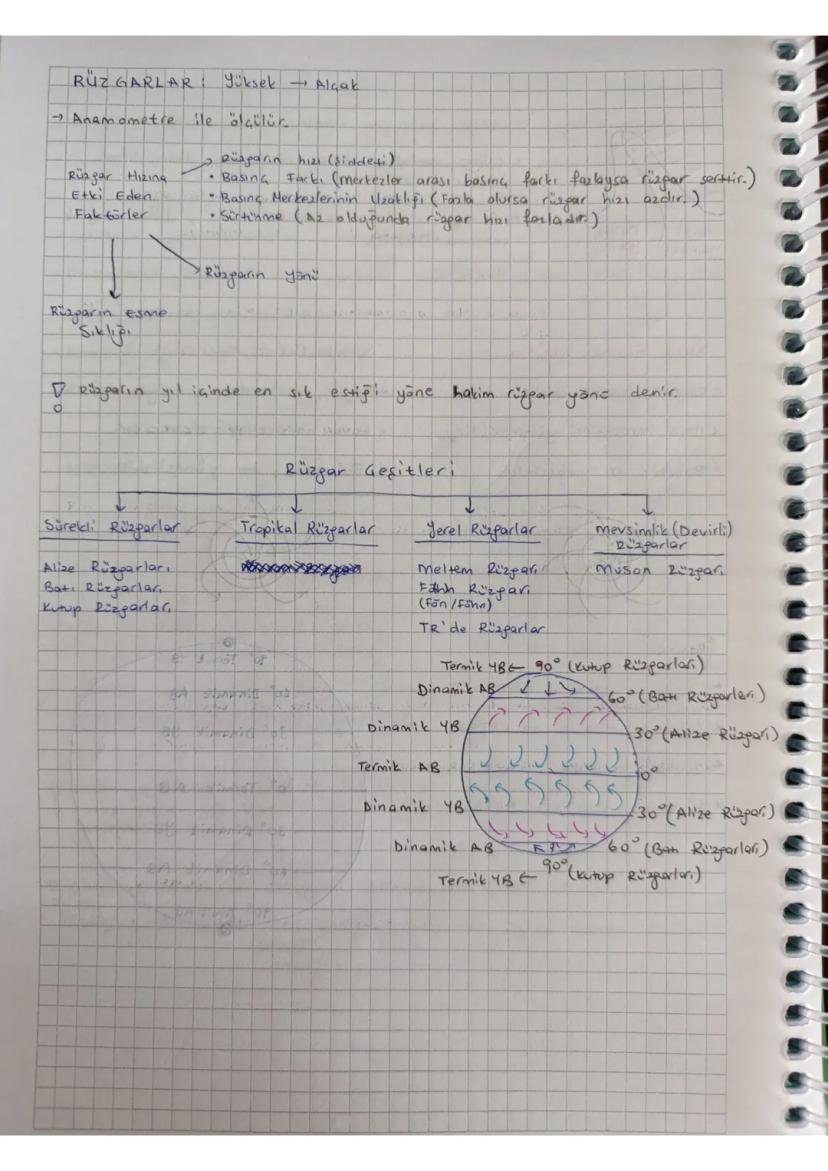 RÜZGARLAR: Yüksek → Alçak
→ Anamometre ile ölçülür.
Rüzgarın hızı (şiddeti)
Rüzgar Hızına
• Basınç Farkı (merkezler arası basınç farkı fazlaysa rüzgar serttir.)
Etki Eden
• Basınç Merkezlerinin Uzaklığı (Fazla olursa rüzgar hızı azdır.)
Faktörler
• Sürtünme (Az olduğunda rüzgar hızı fazladır.)
Rüzgarın yönü
Rüzgarın esme
Sıklığı
Rüzgarın yıl içinde en sık estiği yöne hakim rüzgar yönü denir.
Rüzgar Çeşitleri
Sürekli Rüzgarlar
Alize Rüzgarları
Batı Rüzgarları
Kutup Rüzgarları
Tropikal Rüzgarlar
Yerel Rüzgarlar
Meltem Rüzgarı
Föhn Rüzgarı
(Fön/Föhn)
TR'de Rüzgarlar
Mevsimlik (Devirli)
Rüzgarlar
Muson Rüzgarı
Termik YB ← 90° (Kutup Rüzgarları)
Dinamik AB 60° (Batı Rüzgarları)
Dinamik YB 30° (Alize Rüzgarı)
Termik AB 0°
Dinamik YB 30° (Alize Rüzgarı)
Dinamik AB 60° (Batı Rüzgarları)
Termik YB ← 90° (Kutup Rüzgarları)